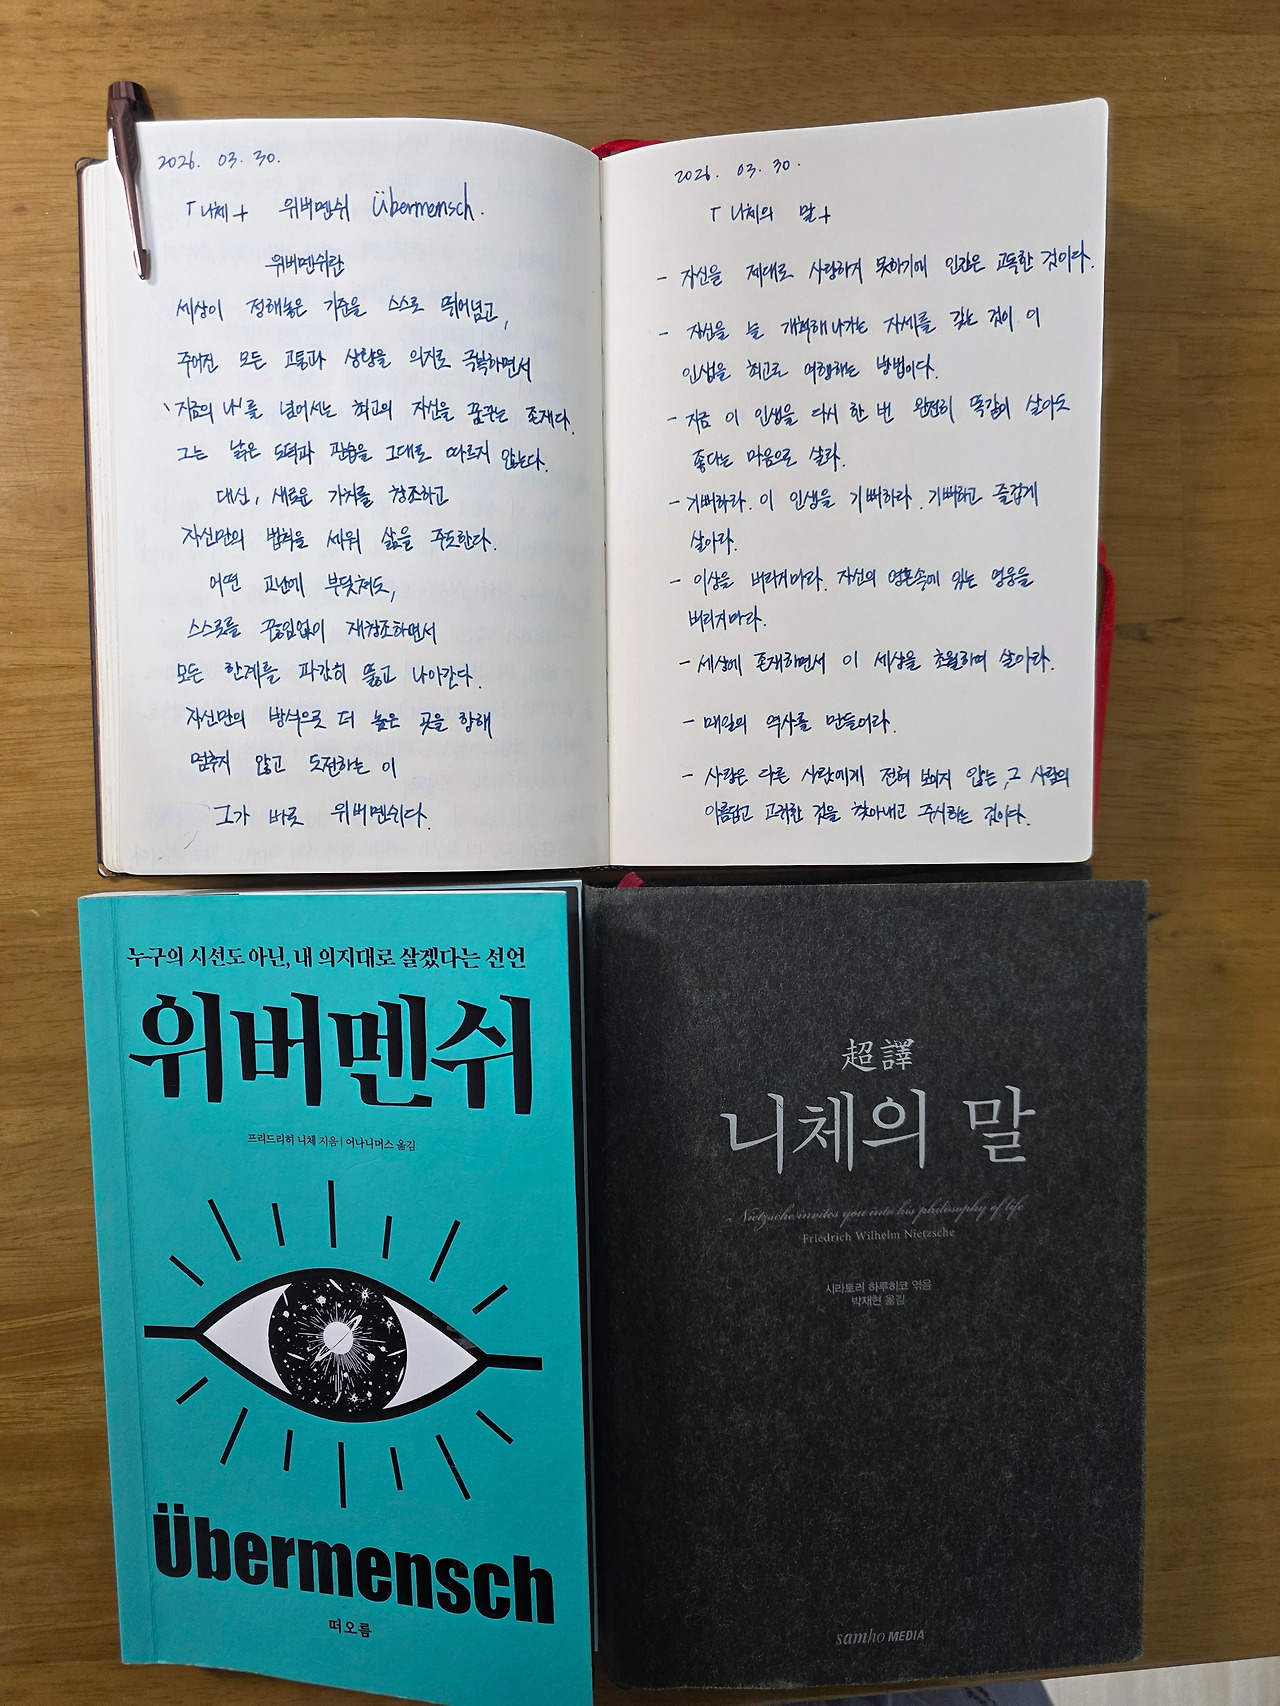 2026. 03. 30.
「니체」 위버멘쉬 Übermensch.
위버멘쉬란
세상이 정해놓은 기준을 스스로 뛰어넘고,
주어진 모든 고통과 상황을 의지로 극복하면서
'지금의 나'를 넘어서는 최고의 자신을 꿈꾸는 존재다.
그는 낡은 도덕과 관습을 그대로 따르지 않는다.
대신, 새로운 가치를 창조하고
자신만의 법칙을 세워 삶을 주도한다.
어떤 고난에 부딪쳐도,
스스로를 끊임없이 재창조하면서
모든 한계를 과감히 뚫고 나아간다.
자신만의 방식으로 더 높은 곳을 향해
멈추지 않고 도전하는 이
그가 바로 위버멘쉬다.
2026. 03. 30.
「니체의 말」
- 자신을 제대로 사랑하지 못하기에 인간은 고독한 것이다.
- 자신을 늘 개혁해나가는 자세를 갖는 것이 이
인생을 최고로 여행하는 방법이다.
- 지금 이 인생을 다시 한 번 완전히 똑같이 살아도
좋다는 마음으로 살라.
- 기뻐하라. 이 인생을 기뻐하라. 기뻐하고 즐겁게
살아라.
- 이상을 버리지마라. 자신의 영혼속에 있는 영웅을
버리지마라.
- 세상에 존재하면서 이 세상을 초월하며 살아라.
- 매일의 역사를 만들어라.
- 사랑은 다른 사람에게 전혀 보이지 않는, 그 사람의
아름답고 고귀한 것을 찾아내고 주시하는 것이다.
누구의 시선도 아닌, 내 의지대로 살겠다는 선언
위버멘쉬
프리드리히 니체 지음 | 어나니머스 옮김
Übermensch
떠오름
超譯
니체의 말
Nietzsche invites you into his philosophy of life
Friedrich Wilhelm Nietzsche
시라토리 하루히코 엮음
박재현 옮김
samho MEDIA